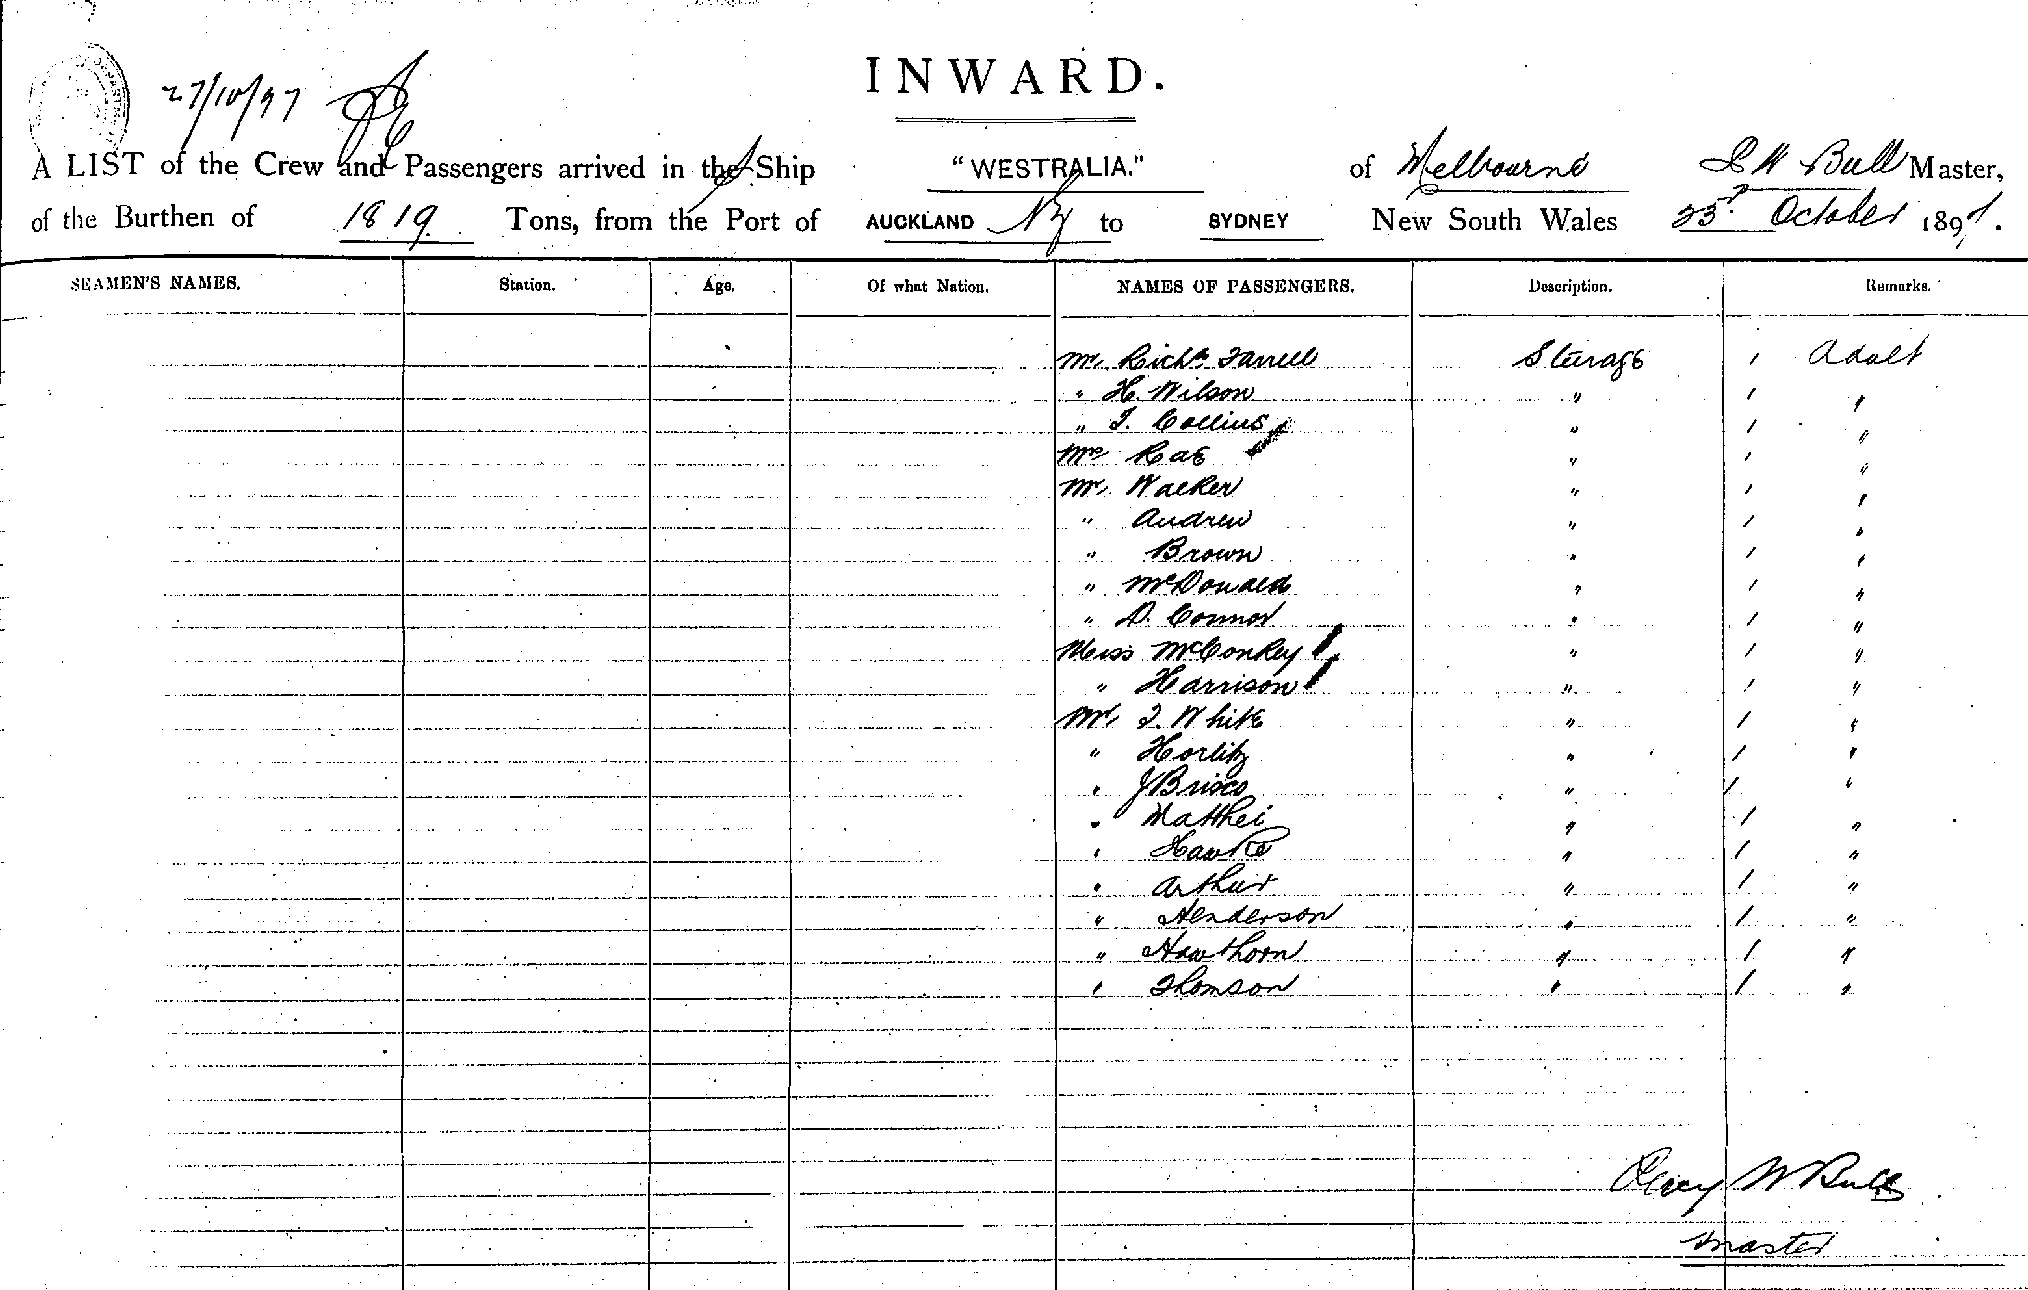 INWARD.
27/10/97
A LIST of the Crew and Passengers arrived in the S Ship "WESTRALIA." of Melbourne W Bull Master,
of the Burthen of 1819 Tons, from the Port of AUCKLAND NZ to SYDNEY New South Wales October 1897.
SEAMEN'S NAMES. Station. Age. Of what Nation. NAMES OF PASSENGERS. Description. Remarks.
Mr. Richd. Farrell Sterage 1 Adult
" H. Wilson " 1 "
" T. Collins " 1 "
Mrs Rae " 1 "
Mr. Walker " 1 "
" Andrew " 1 "
" Brown " 1 "
" McDonald " 1 "
" D. Connor " 1 "
Miss McConkey " 1 "
" Harrison " 1 "
Mr. T. White " 1 "
" Horlitz " 1 "
" J Brisco " 1 "
" Matthei " 1 "
" Hawke " 1 "
" Arthur " 1 "
" Henderson " 1 "
" Hawthorn " 1 "
" Thomson " 1 "
W Bull
Master